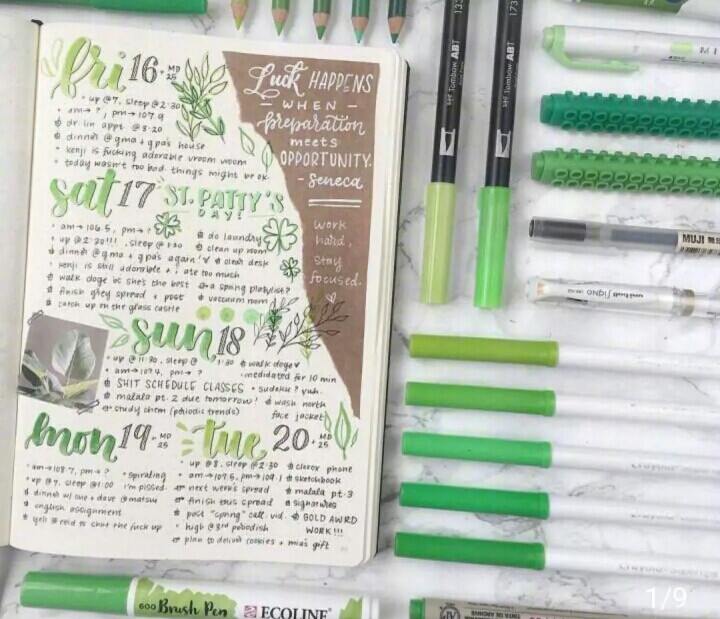 fri 16 · MD 25
· up @ 7, sleep @ 2:30
· am → ?, pm → 107.9
dr. lin appt @ 3:20
dinner @ gma + gpa's house
· kenji is fucking adorable vroom voom
· today wasn't too bad. things might be ok.
sat 17 ST. PATTY'S DAY!
· am → 106.5, pm → ?
· up @ 2:30!!!, sleep @ 1:30
dinner @ gma + gpa's again!
· kenji is still adorable + i ate too much
walk doge bc she's the best
finish grey spread + post
catch up on the glass castle
do laundry
clean up room
clean desk
a spring playlist?
vacuum room
Luck HAPPENS
— WHEN —
preparation
meets
OPPORTUNITY.
- Seneca
work
hard,
stay
focused.
sun 18
· up @ 11:30, sleep @ 1:30
· am → 107.4, pm → ?
SHIT SCHEDULE CLASSES
malala pt. 2 due tomorrow!
study chem (periodic trends)
walk doge
· medidated for 10 min
· sudoku? yuh.
wash north
face jacket
mon 19 · MD 25
· am → 108.7, pm → ?
· up @ 7, sleep @ 1:00
dinner w/ sue + dave @ matsu
english assignment
yell @ reid to shut the fuck up
· spiraling
i'm pissed.
tue 20 · MD 25
· up @ 8, sleep @ 2:30
· am → 107.5, pm → 109.1
next week's spread
finish this spread
post "spring" call. vid.
· high @ 3rd
plan to deliver cookies + mia's gift
clorox phone
sketchbook
malala pt. 3
signatures
GOLD AWRD
WORK!!!
Tombow ABT
133
Tombow ABT
173
MUJI
uni-ball Signo
600 Brush Pen
ECOLINE
TINTA DE ARCHIVO
1/9